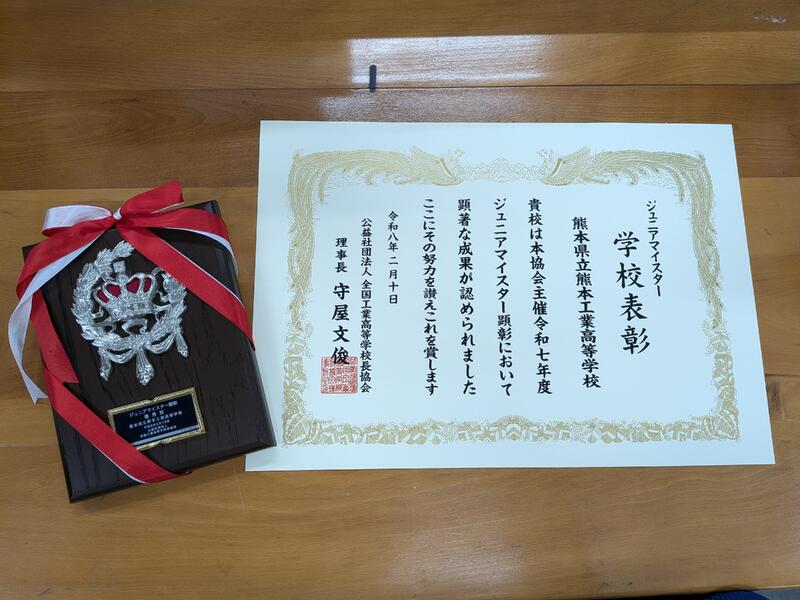 ジュニアマイスター
学校表彰
熊本県立熊本工業高等学校
貴校は本協会主催令和七年度
ジュニアマイスター顕彰において
顕著な成果が認められました
ここにその努力を讃えこれを賞します
令和八年二月十日
公益社団法人 全国工業高等学校長協会
理事長 守屋文俊
ジュニアマイスター顕彰
優秀校
熊本県立熊本工業高等学校